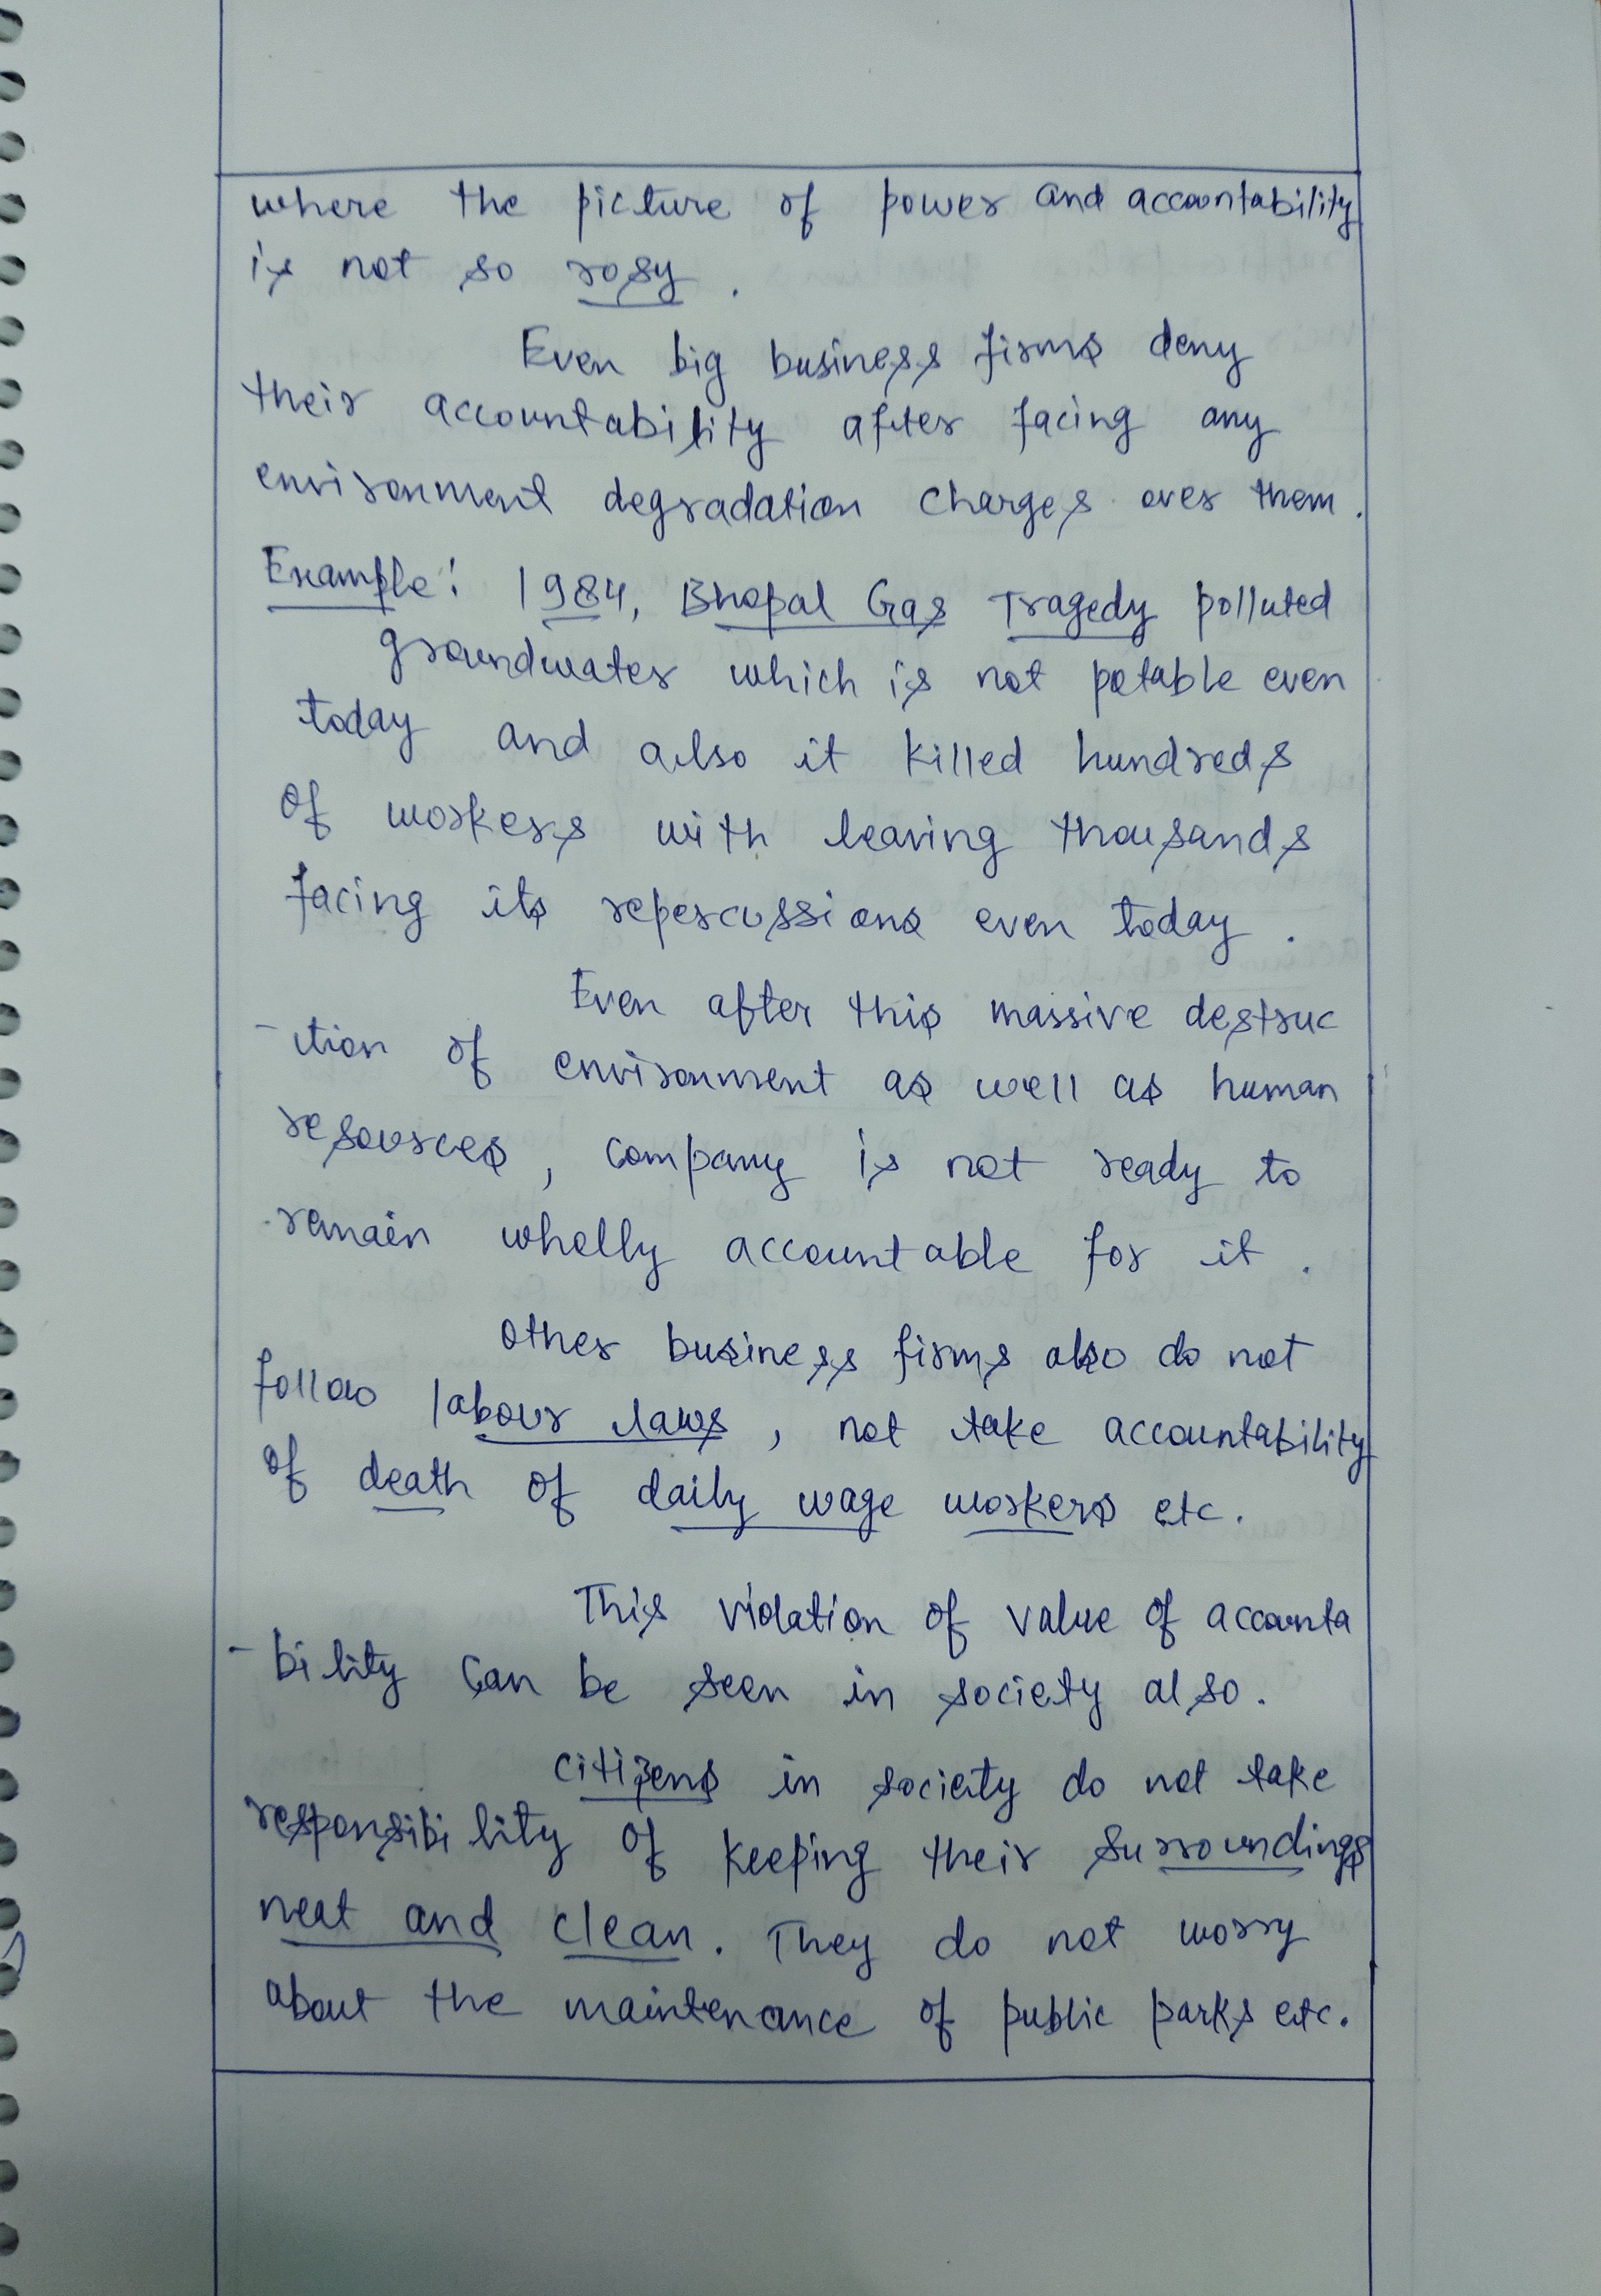 where the picture of power and accountability
is not so rosy.
Even big business firms deny
their accountability after facing any
environment degradation charges over them.
Example: 1984, Bhopal Gas Tragedy polluted
groundwater which is not potable even
today and also it killed hundreds
of workers with leaving thousands
facing its repercussions even today.
Even after this massive destruc
-ction of environment as well as human
resources, company is not ready to
remain wholly accountable for it.
Other business firms also do not
follow labour laws, not take accountability
of death of daily wage workers etc.
This violation of value of accounta
-bility can be seen in society also.
Citizens in society do not take
responsibility of keeping their surroundings
neat and clean. They do not worry
about the maintenance of public parks etc.